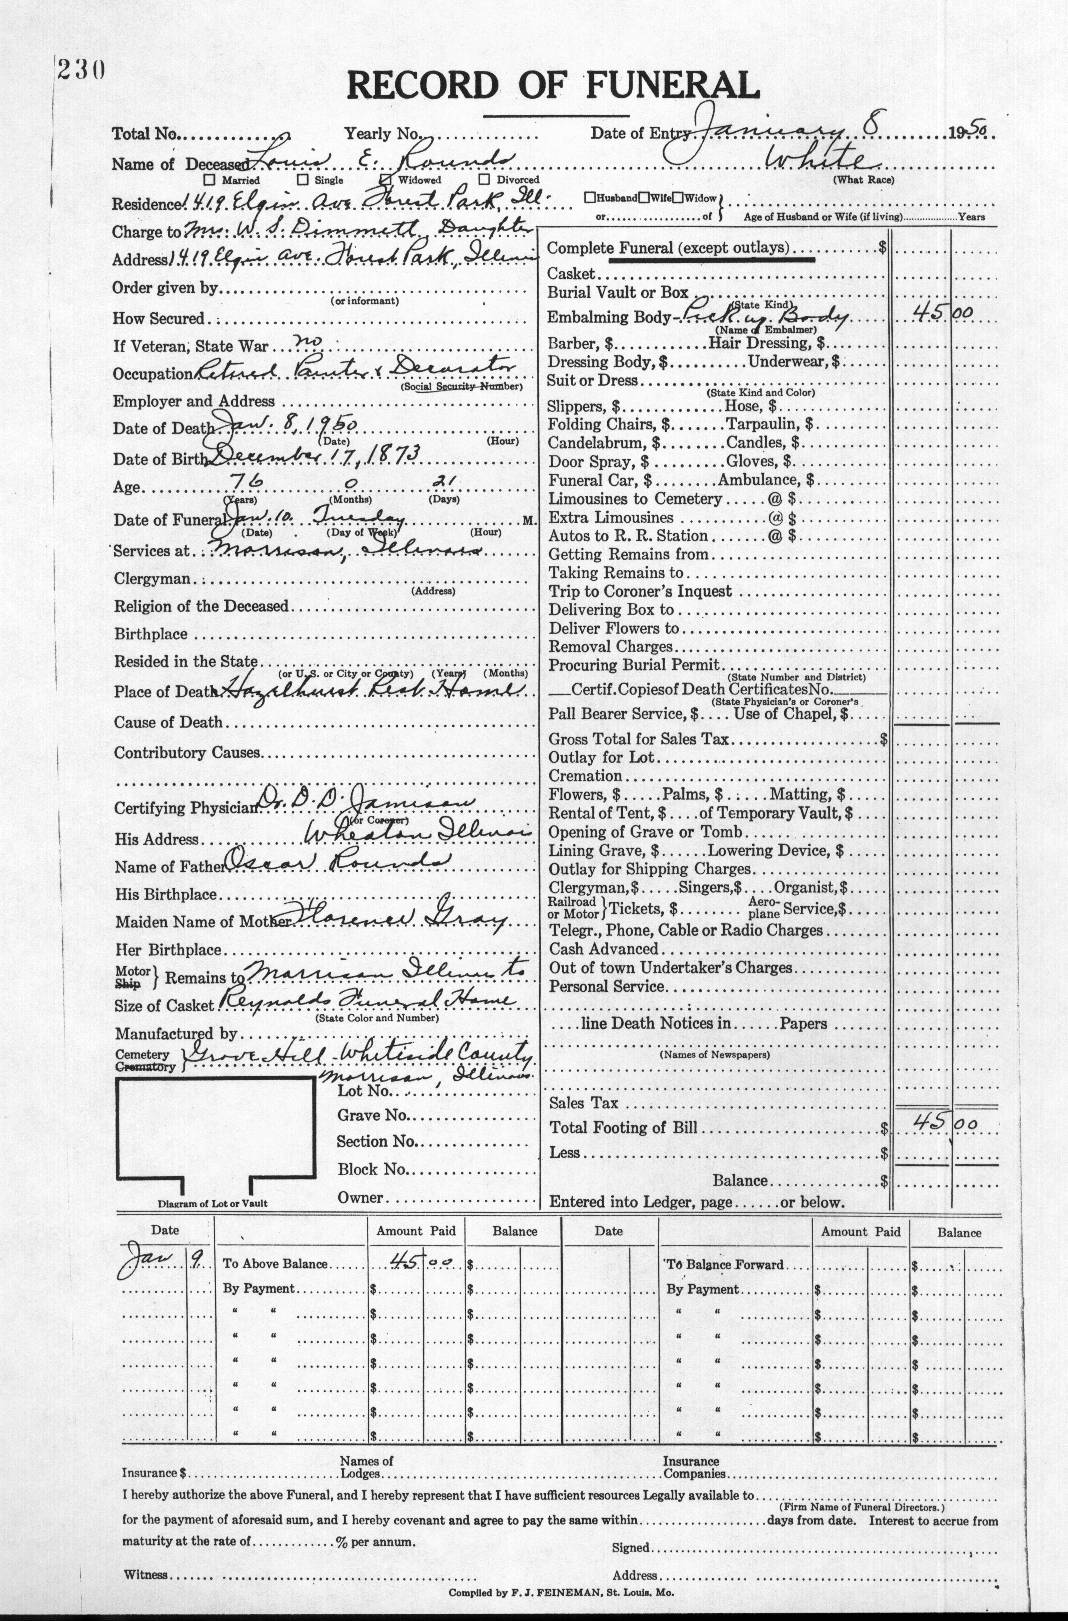 230
RECORD OF FUNERAL
Total No. Yearly No. Date of Entry January 8 1950
Name of Deceased Louis E. Rounds White
☐ Married ☐ Single ☑ Widowed ☐ Divorced (What Race)
Residence 1419 Elgin Ave Forest Park, Ill. ☐Husband☐Wife☐Widow }
or of Age of Husband or Wife (if living) Years
Charge to Mrs. W. S. Dimmett, Daughter
Address 1419 Elgin Ave. Forest Park, Illinois
Order given by
(or informant)
How Secured
If Veteran, State War no
Occupation Retired Painter & Decorator
(Social Security Number)
Employer and Address
Date of Death Jan. 8, 1950
(Date) (Hour)
Date of Birth December 17, 1873
Age 76 0 21
(Years) (Months) (Days)
Date of Funeral Jan. 10. Tuesday M.
(Date) (Day of Week) (Hour)
Services at Morrison, Illinois
Clergyman
(Address)
Religion of the Deceased
Birthplace
Resided in the State
(or U. S. or City or County) (Years) (Months)
Place of Death Hazelhurst Rest Home
Cause of Death
Contributory Causes
Certifying Physician Dr. D. D. Jamison
(or Coroner)
His Address Wheaton Illinois
Name of Father Oscar Rounds
His Birthplace
Maiden Name of Mother Florence Gray
Her Birthplace
Motor
Ship } Remains to Morrison Illinois to
Size of Casket Reynolds Funeral Home
(State Color and Number)
Manufactured by
Cemetery
Crematory } Grove Hill - Whiteside County
Morrison, Illinois
Lot No.
Grave No.
Section No.
Block No.
Owner
Diagram of Lot or Vault
Complete Funeral (except outlays) $
Casket
Burial Vault or Box
(State Kind)
Embalming Body- Pick up Body 45 00
(Name of Embalmer)
Barber, $ Hair Dressing, $
Dressing Body, $ Underwear, $
Suit or Dress
(State Kind and Color)
Slippers, $ Hose, $
Folding Chairs, $ Tarpaulin, $
Candelabrum, $ Candles, $
Door Spray, $ Gloves, $
Funeral Car, $ Ambulance, $
Limousines to Cemetery @ $
Extra Limousines @ $
Autos to R. R. Station @ $
Getting Remains from
Taking Remains to
Trip to Coroner's Inquest
Delivering Box to
Deliver Flowers to
Removal Charges
Procuring Burial Permit
(State Number and District)
Certif. Copies of Death Certificates No.
(State Physician's or Coroner's
Pall Bearer Service, $ Use of Chapel, $
Gross Total for Sales Tax $
Outlay for Lot
Cremation
Flowers, $ Palms, $ Matting, $
Rental of Tent, $ of Temporary Vault, $
Opening of Grave or Tomb
Lining Grave, $ Lowering Device, $
Outlay for Shipping Charges
Clergyman, $ Singers, $ Organist, $
Railroad
or Motor } Tickets, $ Aero-
plane Service, $
Telegr., Phone, Cable or Radio Charges
Cash Advanced
Out of town Undertaker's Charges
Personal Service
line Death Notices in Papers
(Names of Newspapers)
Sales Tax
Total Footing of Bill $ 45 00
Less $
Balance $
Entered into Ledger, page or below.
Date Amount Paid Balance Date Amount Paid Balance
Jan 9 To Above Balance 45 00 $ To Balance Forward $
By Payment $ $ By Payment $ $
" " $ $ " " $ $
" " $ $ " " $ $
" " $ $ " " $ $
" " $ $ " " $ $
" " $ $ " " $ $
" " $ $ " " $ $
Insurance $ Names of
Lodges Insurance
Companies
I hereby authorize the above Funeral, and I hereby represent that I have sufficient resources Legally available to
(Firm Name of Funeral Directors.)
for the payment of aforesaid sum, and I hereby covenant and agree to pay the same within days from date. Interest to accrue from
maturity at the rate of % per annum.
Signed
Witness Address
Compiled by F. J. FEINEMAN, St. Louis, Mo.